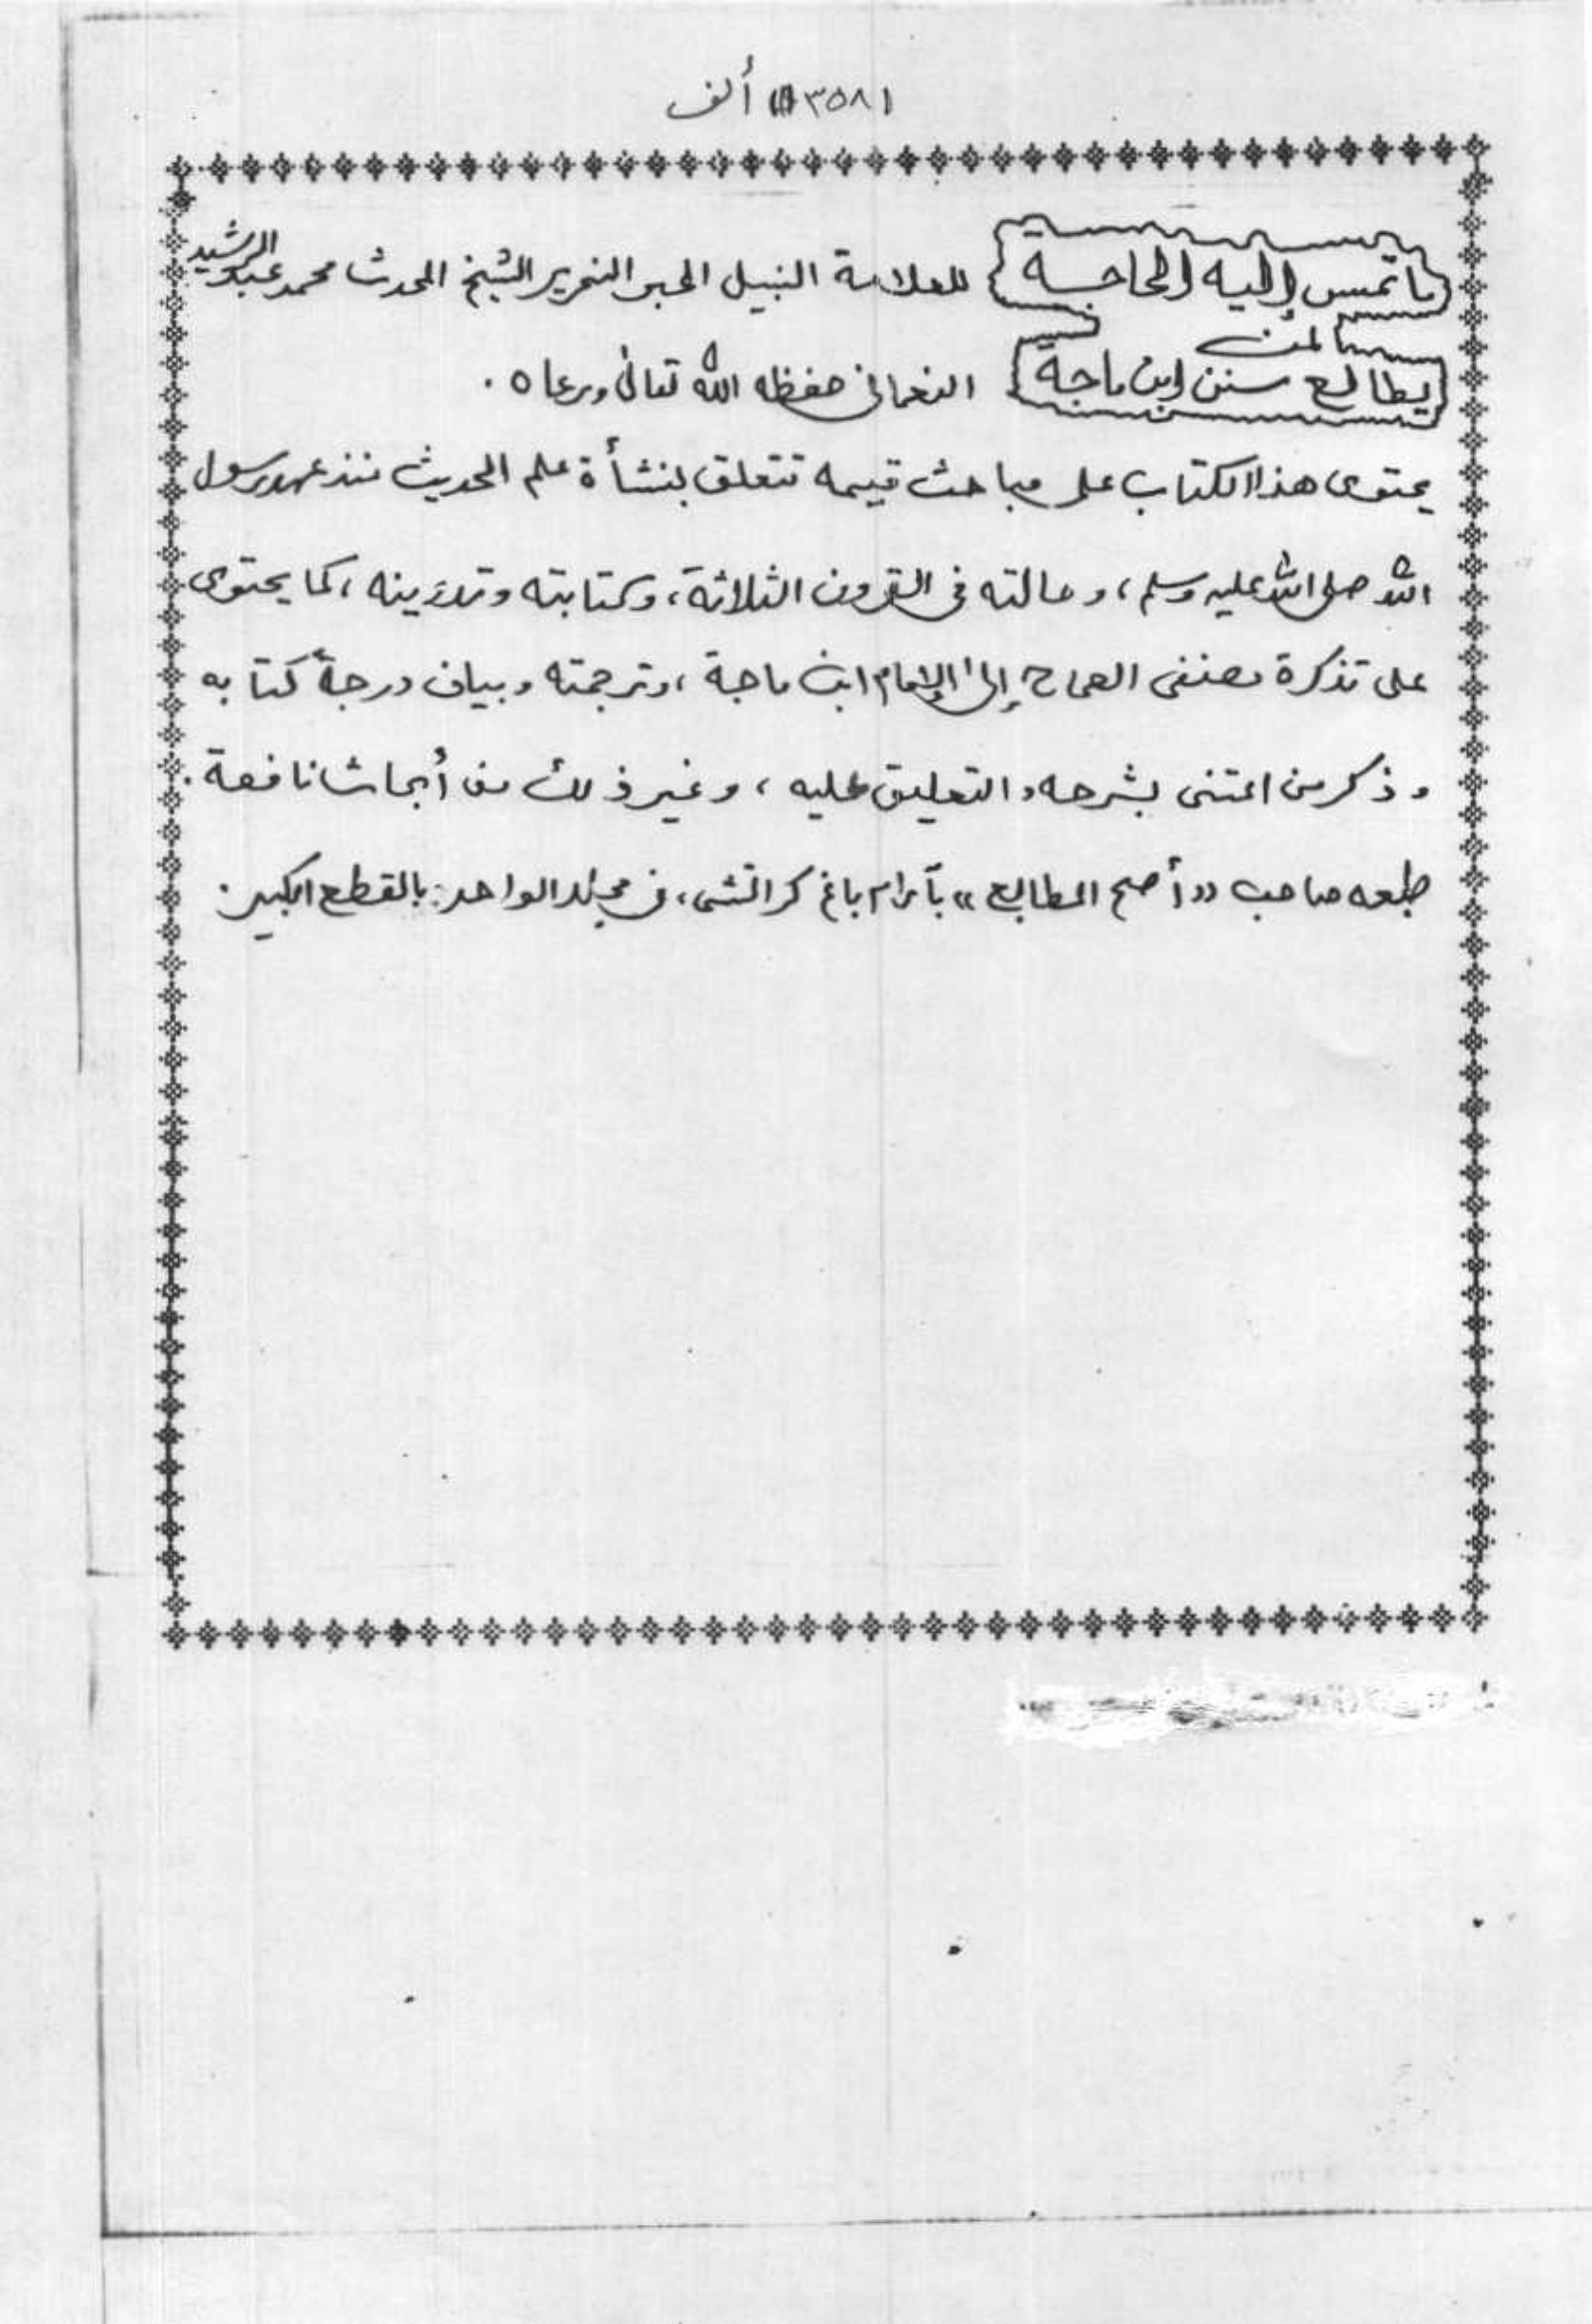 ٣٥٨١ ألف
ما تمس إليه الحاجة للعلامة النبيل الحبر النحرير الشيخ المحدث محمد عبد الرشيد
لمن
يطالع سنن ابن ماجة النعماني حفظه الله تعالى ورعاه.
يحتوى هذا الكتاب على مباحث قيمه تتعلق بنشأة علم الحديث منذ عهد رسول
الله صلى الله عليه وسلم، وحالته فى القرون الثلاثة، وكتابته وتدوينه، كما يحتوى
على تذكرة مصنفى الصحاح إلى الإمام ابن ماجة، وترجمته وبيان درجة كتابه
وذكر من اعتنى بشرحه والتعليق عليه، وغير ذلك من أبحاث نافعة.
طبعه صاحب ((أصح المطابع)) بآرام باغ كراتشى، فى مجلد الواحد: بالقطع الكبير.